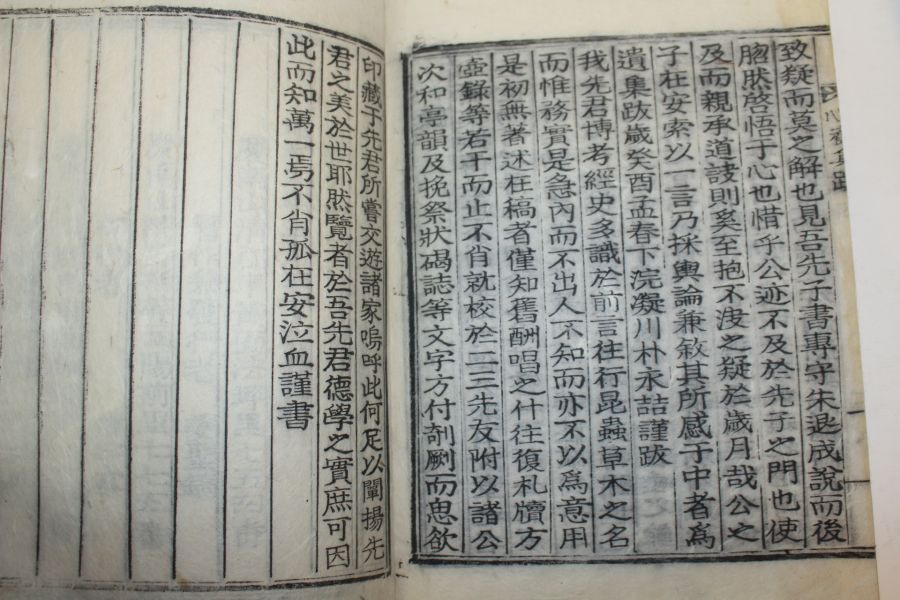 致疑而莫之解也見吾先子書專守朱退成說而後
脗然啓悟于心也惜乎公迹不及於先子之門也使
及而親承道誨則奚至抱不決之疑於歲月哉公之
子在安索以一言乃採輿論兼敘其所感于中者爲
遺集跋歲癸酉孟春下浣凝川朴永喆謹跋
我先君博考經史多識於前言往行昆蟲草木之名
而惟務實是急內而不出人不知而亦不以爲意用
是初無著述在稿者僅知舊酬唱之什往復札牘方
壺錄等若干而止不肖就校於二三先友附以諸公
次和亭韻及挽祭狀碣誌等文字方付剞劂而思欲
印藏于先君所嘗交遊諸家嗚呼此何足以闡揚先
君之美於世耶然覽者於吾先君德學之實庶可因
此而知萬一焉不肖孤在安泣血謹書